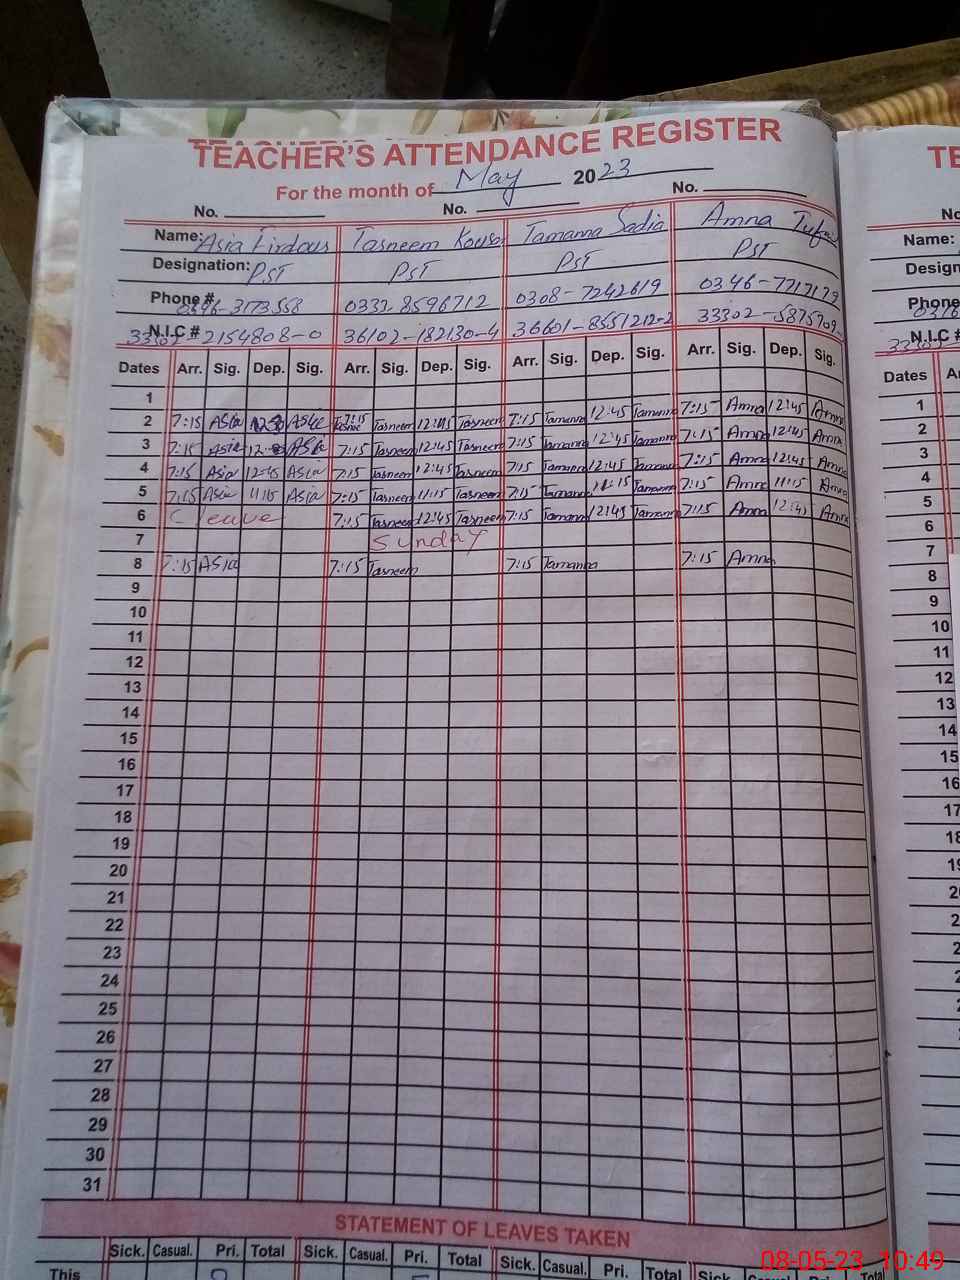 TEACHER'S ATTENDANCE REGISTER
For the month of May 2023
No. No. No.
Name: Asia Firdous Tasneem Kousar Tamanna Sadia Amna
Designation: PST PST PST PST
Phone # 0346-3173558 0332-8596712 0308-7242619 0346-7717179
N.I.C # 2154808-0 36102-182130-4 36601-8551212-2 33302-5875909
Dates Arr. Sig. Dep. Sig. Arr. Sig. Dep. Sig. Arr. Sig. Dep. Sig. Arr. Sig. Dep. Sig.
1
2 7:15 Asia Asia 7:15 Tasneem 12:45 Tasneem 7:15 Tamanna 12:45 Tamanna 7:15 Amna 12:45 Amna
3 7:15 Asia Asia 7:15 Tasneem 12:45 Tasneem 7:15 Tamanna 12:45 Tamanna 7:15 Amna 12:45 Amna
4 7:15 Asia 12:45 Asia 7:15 Tasneem 12:45 Tasneem 7:15 Tamanna 12:45 Tamanna 7:15 Amna 12:45 Amna
5 7:15 Asia 11:15 Asia 7:15 Tasneem 11:15 Tasneem 7:15 Tamanna 11:15 Tamanna 7:15 Amna 11:15 Amna
6 C leave 7:15 Tasneem 12:45 Tasneem 7:15 Tamanna 12:45 Tamanna 7:15 Amna 12:45 Amna
7 Sunday
8 7:15 Asia 7:15 Tasneem 7:15 Tamanna 7:15 Amna
9
10
11
12
13
14
15
16
17
18
19
20
21
22
23
24
25
26
27
28
29
30
31
STATEMENT OF LEAVES TAKEN
Sick. Casual. Pri. Total Sick. Casual. Pri. Total Sick. Casual. Pri. Total Sick. Casual. Pri. Total
This
TE
No
Name:
Design
Phone
N.I.C #
Dates A
1
2
3
4
5
6
7
8
9
10
11
12
13
14
15
16
17
18
19
20
08-05-23 10:49